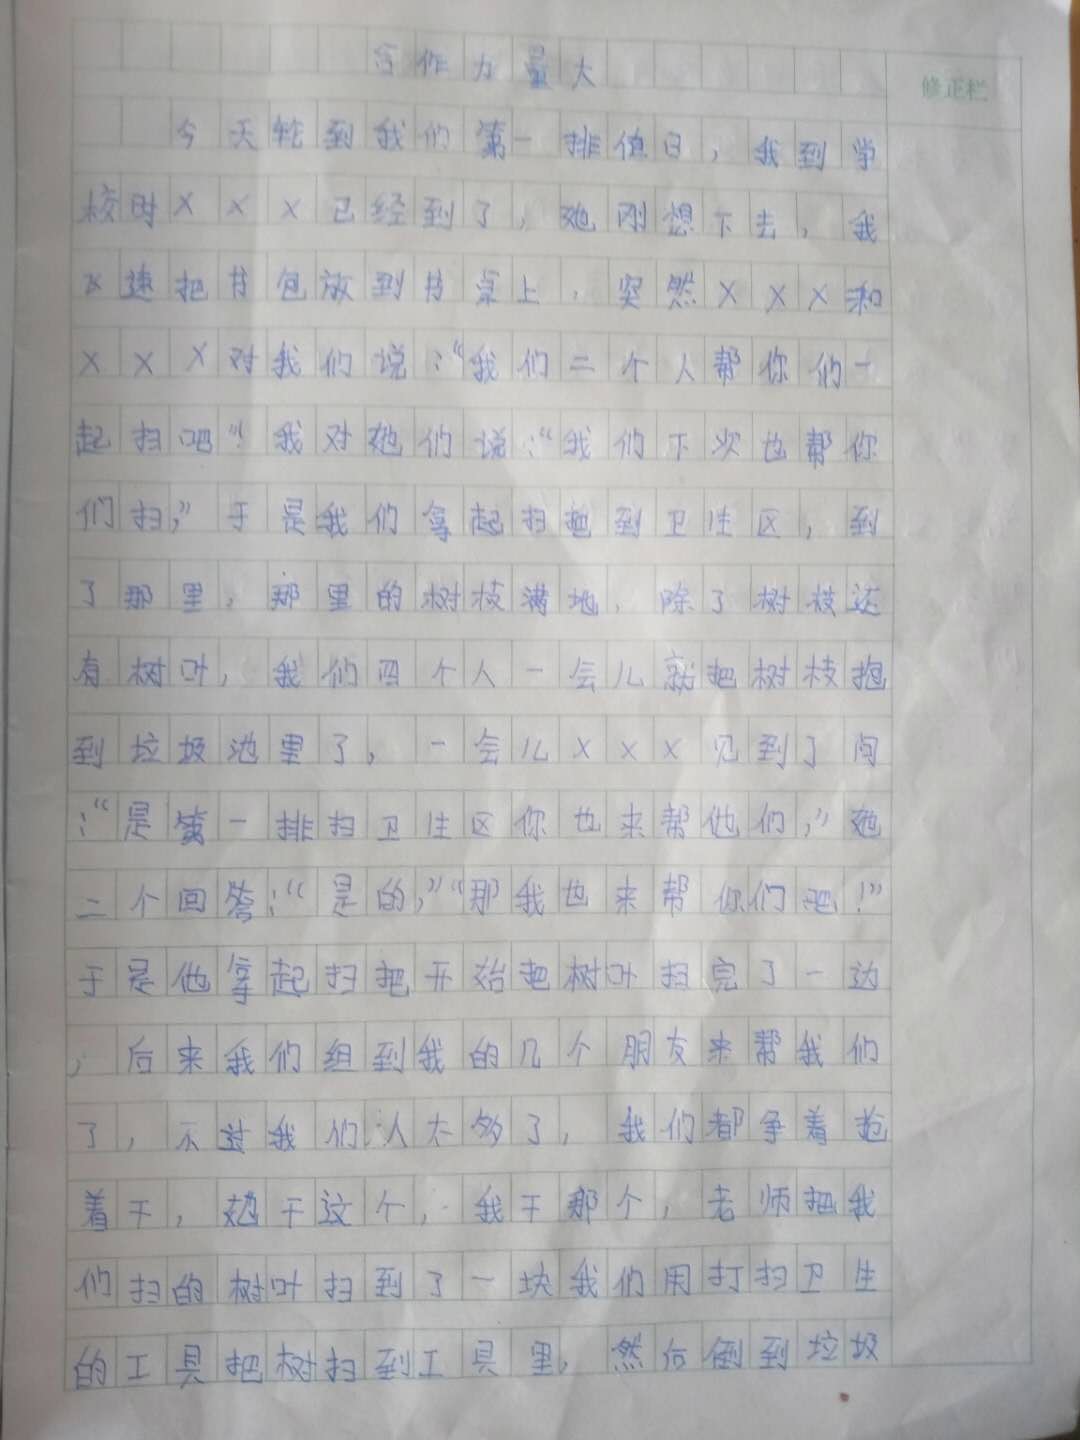 合作力量大
修正栏
今天轮到我们第一排值日，我到学
校时XXX已经到了，她刚想下去，我
速把书包放到书桌上，突然XXX和
XXX对我们说：“我们二个人帮你们一
起扫吧”！我对她们说：“我们下次也帮你
们扫，”于是我们拿起扫把到卫生区，到
了那里，那里的树枝满地，除了树枝还
有树叶，我们四个人一会儿就把树枝抱
到垃圾池里了，一会儿XXX见到了问
：“是第一排扫卫生区你也来帮他们，”她
二个回答：“是的，”“那我也来帮你们吧！”
于是他拿起扫把开始把树叶扫完了一边
，后来我们组到我的几个朋友来帮我们
了，不过我们人太多了，我们都争着抢
着干，她干这个，我干那个，老师把我
们扫的树叶扫到了一块我们用打扫卫生
的工具把树扫到工具里，然后倒到垃圾